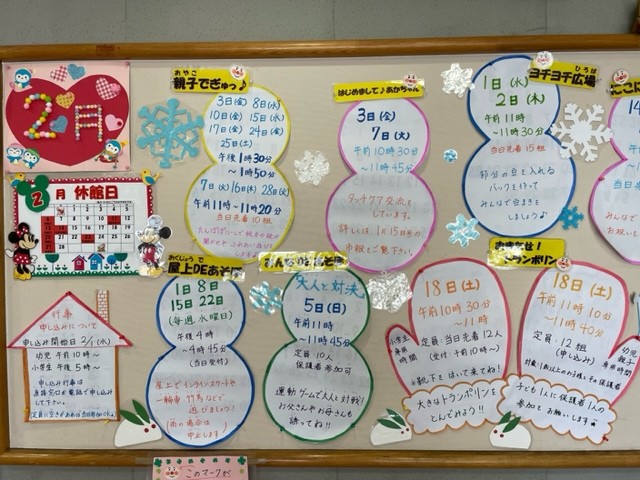 2月
2月 休館日
行事
申し込みについて
申し込み開始日 2/1(水)
幼児 午前10時〜
小学生 午後5時〜
申し込み行事は
直接窓口か電話で申し込み
して下さい。
おやこ
親子でぎゅっ♪
3日(金) 8日(水)
10日(金) 15日(水)
17日(金) 24日(金)
25日(土)
午後1時30分
〜1時50分
7日(火) 16日(木) 28日(火)
午前11時〜11時20分
当日先着10組
はじめまして♪あかちゃん
3日(金)
7日(火)
午前10時30分
〜11時45分
タッチケア交流を
しています。
詳しくは1月15日号の
市報をご覧下さい。
ひろば
ヨチヨチ広場
1日(水)
2日(木)
午前11時
〜11時30分
当日先着15組
節分の豆を入れる
バックを作って
みんなで豆まきを
しましょう♪
おくじょう で
屋上DEあそぼう
1日 8日
15日 22日
(毎週水曜日)
午後4時
〜4時45分
(当日受付)
屋上でインラインスケートや
一輪車・竹馬などで
遊びましょう!
(雨の場合は
中止します)
大人と対決
5日(日)
午前11時
〜11時45分
定員10人
保護者参加可
運動ゲームで大人と対戦!
お父さんやお母さんも
誘ってね!!
おまかせ!
トランポリン
18日(土)
午前10時30分
〜11時
定員:当日先着12人
(受付:午前10時〜)
※靴下をはいて来てね!
大きなトランポリンを
とんでみよう!!
小学生専用時間
18日(土)
午前11時10分
〜11時40分
定員:12組
(申し込み)
対象:1歳以上のお子様とその保護者
子ども1人に保護者1人の
参加でお願いします
幼児親子専用時間
このマークが